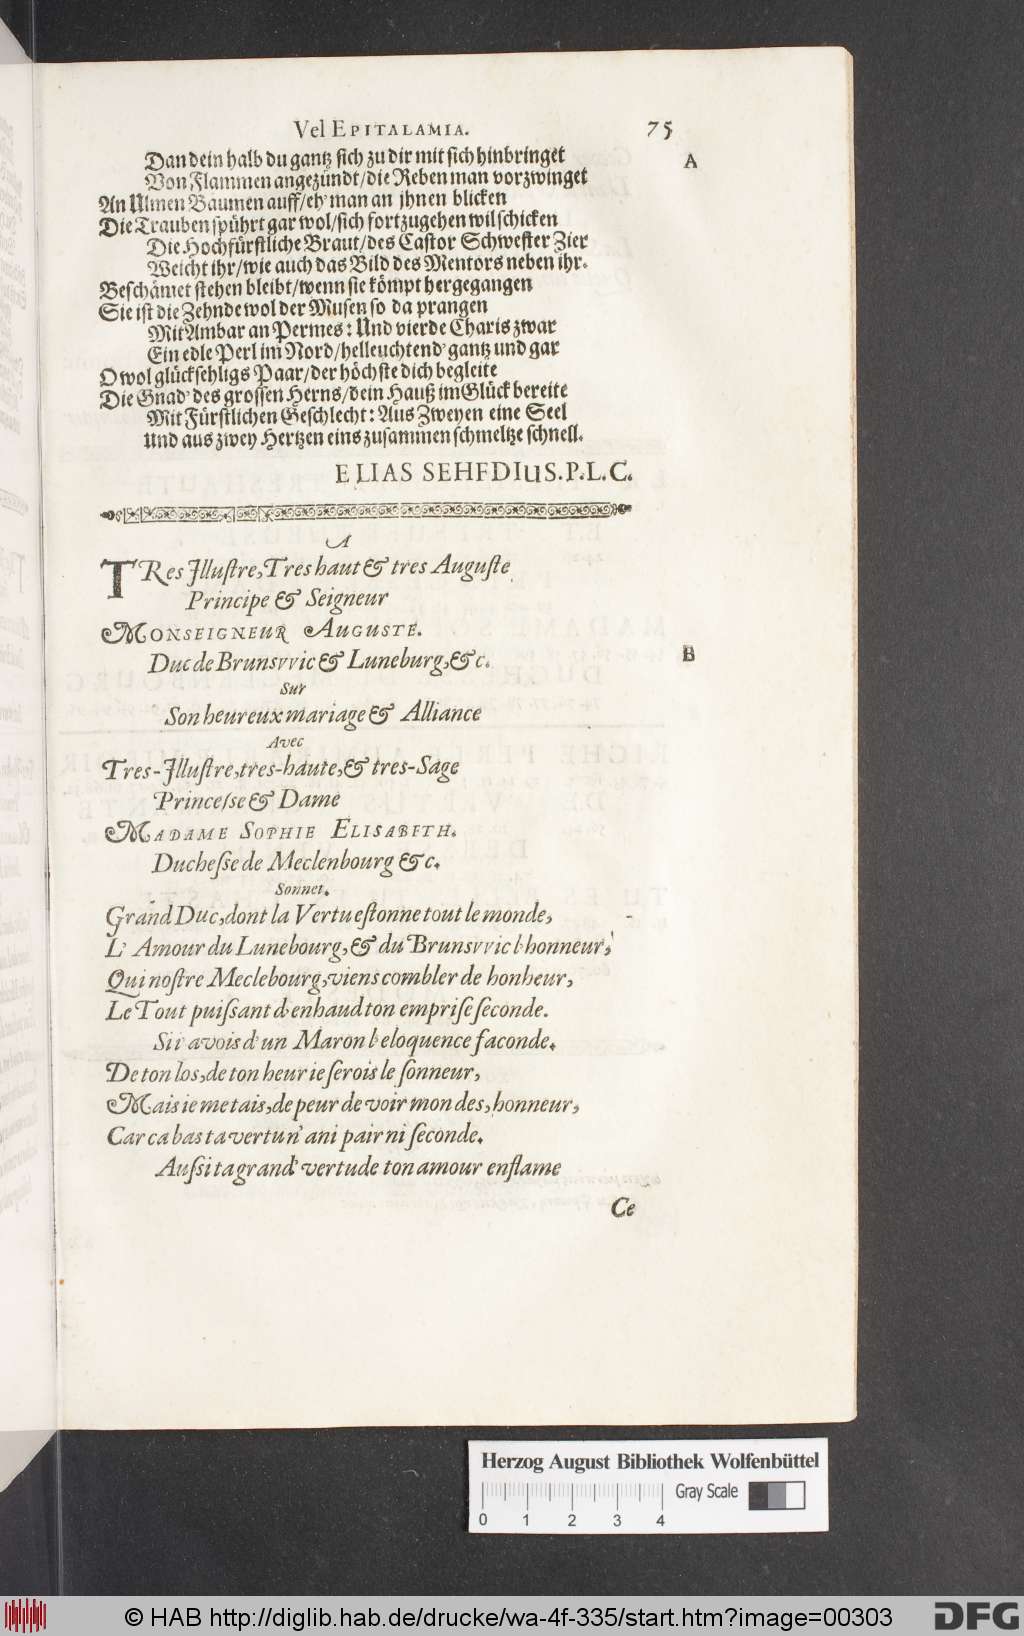 Vel EPITALAMIA. 75
A
Dan dein halb du gantz sich zu dir mit sich hinbringet
Von Flammen angezündt/die Reben man vorzwinget
An Ulmen Baumen auff/eh' man an jhnen blicken
Die Trauben spührt gar wol/sich fortzugehen wil schicken
Die Hochfürstliche Braut/des Castor Schwester Zier
Weicht ihr/wie auch das Bild des Mentors neben ihr.
Beschämet stehen bleibt/wenn sie kömpt hergegangen
Sie ist die Zehnde wol der Musen so da prangen
Mit Ambar an Permes: Und vierde Charis zwar
Ein edle Perl im Nord/helleuchtend' gantz und gar
O wol glücksehligs Paar/der höchste dich begleite
Die Gnad' des grossen Herns/dein Hauß im Glück bereite
Mit Fürstlichen Geschlecht: Aus Zweyen eine Seel
und aus zwey Hertzen eins zusammen schmeltze schnell.
ELIAS SEHEDIUS.P.L.C.
A
TRes Jllustre,Tres haut & tres Auguste
Principe & Seigneur
MONSEIGNEUR AUGUSTE.
Duc de Brunsvvic & Luneburg,&c.
B
Sur
Son heureux mariage & Alliance
Avec
Tres-Jllustre,tres-haute,& tres-Sage
Princesse & Dame
MADAME SOPHIE ELISABETH.
Duchesse de Meclenbourg &c.
Sonnet.
Grand Duc,dont la Vertu estonne tout le monde,
L' Amour du Lunebourg,& du Brunsvvic l'honneur,
Qui nostre Meclebourg,viens combler de honheur,
Le Tout puissant d'enhaud ton emprise seconde.
Si i'avois d'un Maron l'eloquence faconde.
De ton los,de ton heur ie serois le sonneur,
Mais ie me tais,de peur de voir mon des,honneur,
Car ca bas ta vertu n'ani pair ni seconde.
Aussi ta grand' vertu de ton amour enflame
Ce
Herzog August Bibliothek Wolfenbüttel
Gray Scale
0 1 2 3 4
© HAB http://diglib.hab.de/drucke/wa-4f-335/start.htm?image=00303
DFG